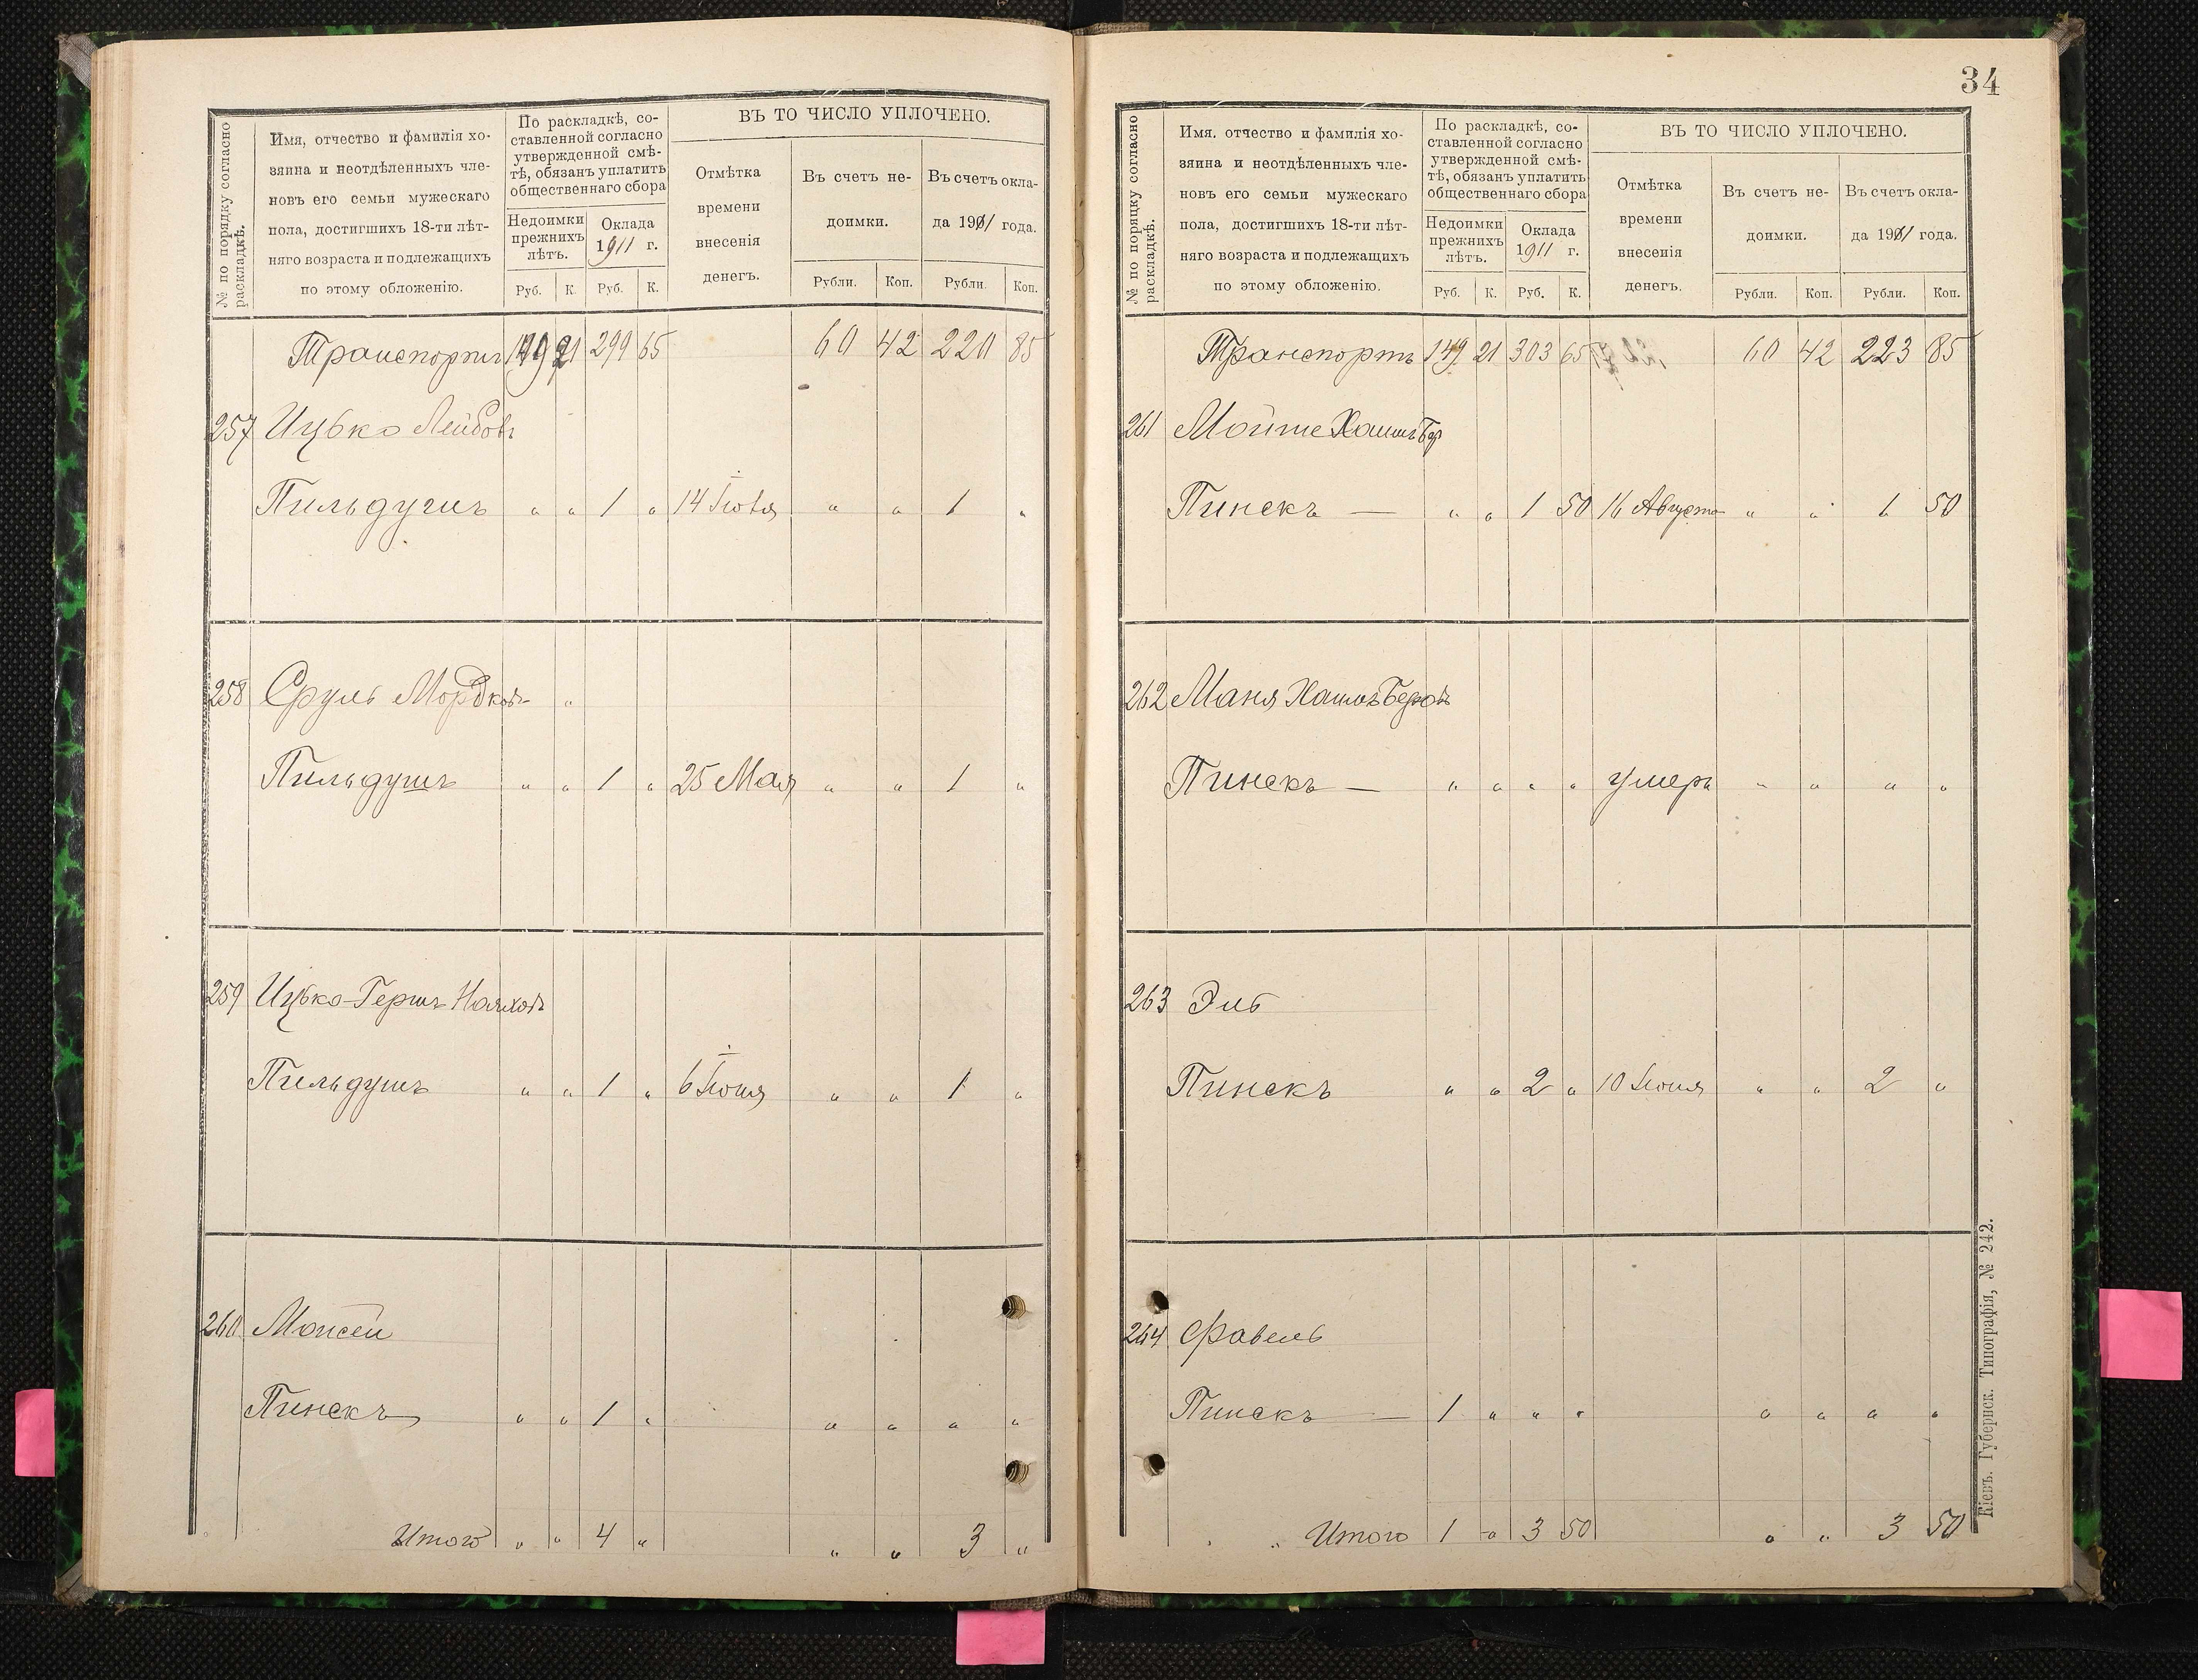 № по порядку согласно раскладкѣ.
Имя, отчество и фамилія хо-
зяина и неотдѣленныхъ чле-
новъ его семьи мужескаго
пола, достигшихъ 18-ти лѣт-
няго возраста и подлежащихъ
по этому обложенію.
По раскладкѣ, со-
ставленной согласно
утвержденной смѣ-
тѣ, обязанъ уплатить
общественнаго сбора
Недоимки
прежнихъ
лѣтъ.
Оклада
1911 г.
Руб. К. Руб. К.
ВЪ ТО ЧИСЛО УПЛОЧЕНО.
Отмѣтка
времени
внесенія
денегъ.
Въ счетъ не-
доимки.
Въ счетъ окла-
да 1911 года.
Рубли. Коп. Рубли. Коп.
Транспортъ 149 21 299 65 60 42 220 85
257 Ицько Лейбовъ
Пильдушъ " " 1 " 14 Іюля " " 1 "
258 Сруль Мордков "
Пильдушъ " " 1 " 25 Мая " " 1 "
259 Ицько-Гершъ
Пильдушъ " " 1 " 6 Іюня " " 1 "
260 Моисей
Пинскъ " " 1 " " " " "
Итого " " 4 " " " 3 "
34
№ по порядку согласно раскладкѣ.
Имя, отчество и фамилія хо-
зяина и неотдѣленныхъ чле-
новъ его семьи мужескаго
пола, достигшихъ 18-ти лѣт-
няго возраста и подлежащихъ
по этому обложенію.
По раскладкѣ, со-
ставленной согласно
утвержденной смѣ-
тѣ, обязанъ уплатить
общественнаго сбора
Недоимки
прежнихъ
лѣтъ.
Оклада
1911 г.
Руб. К. Руб. К.
ВЪ ТО ЧИСЛО УПЛОЧЕНО.
Отмѣтка
времени
внесенія
денегъ.
Въ счетъ не-
доимки.
Въ счетъ окла-
да 1911 года.
Рубли. Коп. Рубли. Коп.
Транспортъ 149 21 303 65 60 42 223 85
261 Мойше Хаимъ Бер
Пинскъ — " " 1 50 16 Августа " " 1 50
262 Маня Хаимъ Берков
Пинскъ — " " " " умеръ " " " "
263 Эль
Пинскъ " " 2 " 10 Іюня " " 2 "
264 Фавель
Пинскъ — 1 " " " " " " "
Итого 1 " 3 50 " " 3 50
Кіевъ. Губернск. Типографія, № 242.